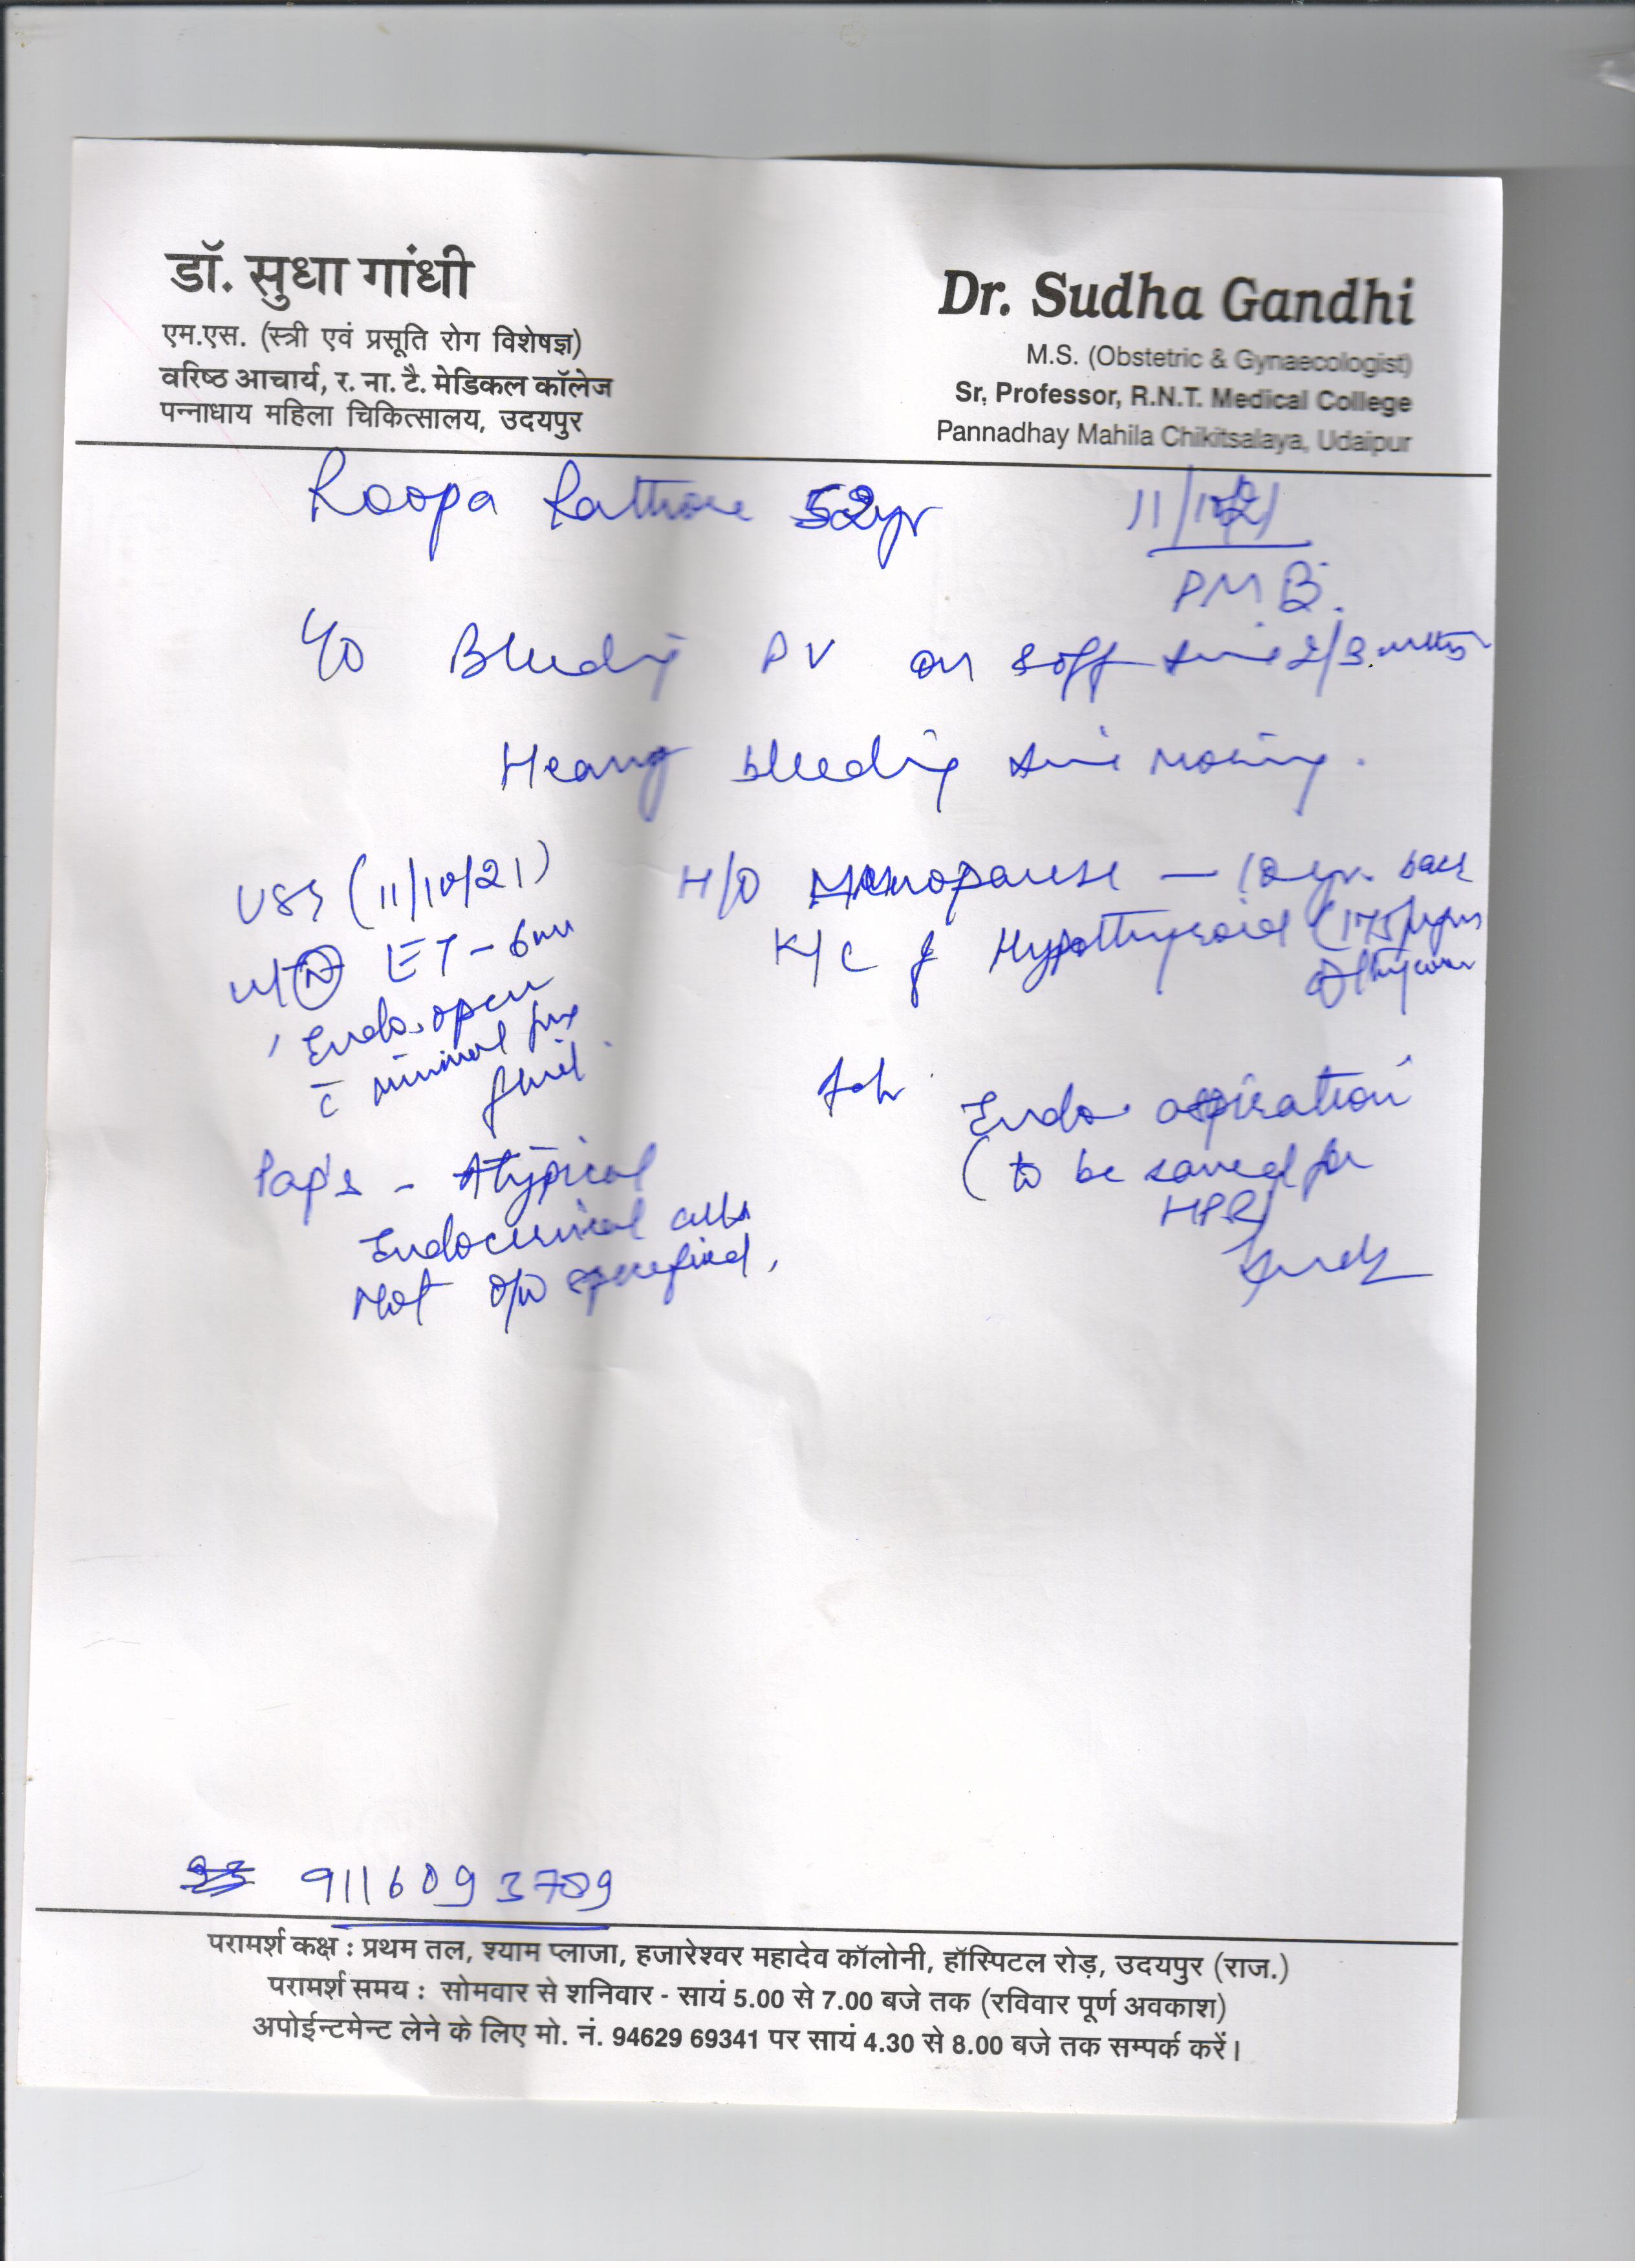 डॉ. सुधा गांधी
एम.एस. (स्त्री एवं प्रसूति रोग विशेषज्ञ)
वरिष्ठ आचार्य, र. ना. टै. मेडिकल कॉलेज
पन्नाधाय महिला चिकित्सालय, उदयपुर
Dr. Sudha Gandhi
M.S. (Obstetric & Gynaecologist)
Sr. Professor, R.N.T. Medical College
Pannadhay Mahila Chikitsalaya, Udaipur
Roopa Rathore 52yr
11/10/21
PMB.
C/O Bleeding PV on & off since 2/3 months
Heavy bleeding since morning.
H/O Menopause - 10 yr. back
K/C of Hypothyroid (175
USG (11/10/21)
ut (N) ET - 6mm
Endo. open
c̄ minimal free
fluid.
Pap's - Atypical
Endocervical cells
Not o/w specified.
Adv. Endo. aspiration
(to be saved for
HPR)
9116093789
परामर्श कक्ष : प्रथम तल, श्याम प्लाजा, हजारेश्वर महादेव कॉलोनी, हॉस्पिटल रोड़, उदयपुर (राज.)
परामर्श समय : सोमवार से शनिवार - सायं 5.00 से 7.00 बजे तक (रविवार पूर्ण अवकाश)
अपोईन्टमेन्ट लेने के लिए मो. नं. 94629 69341 पर सायं 4.30 से 8.00 बजे तक सम्पर्क करें।